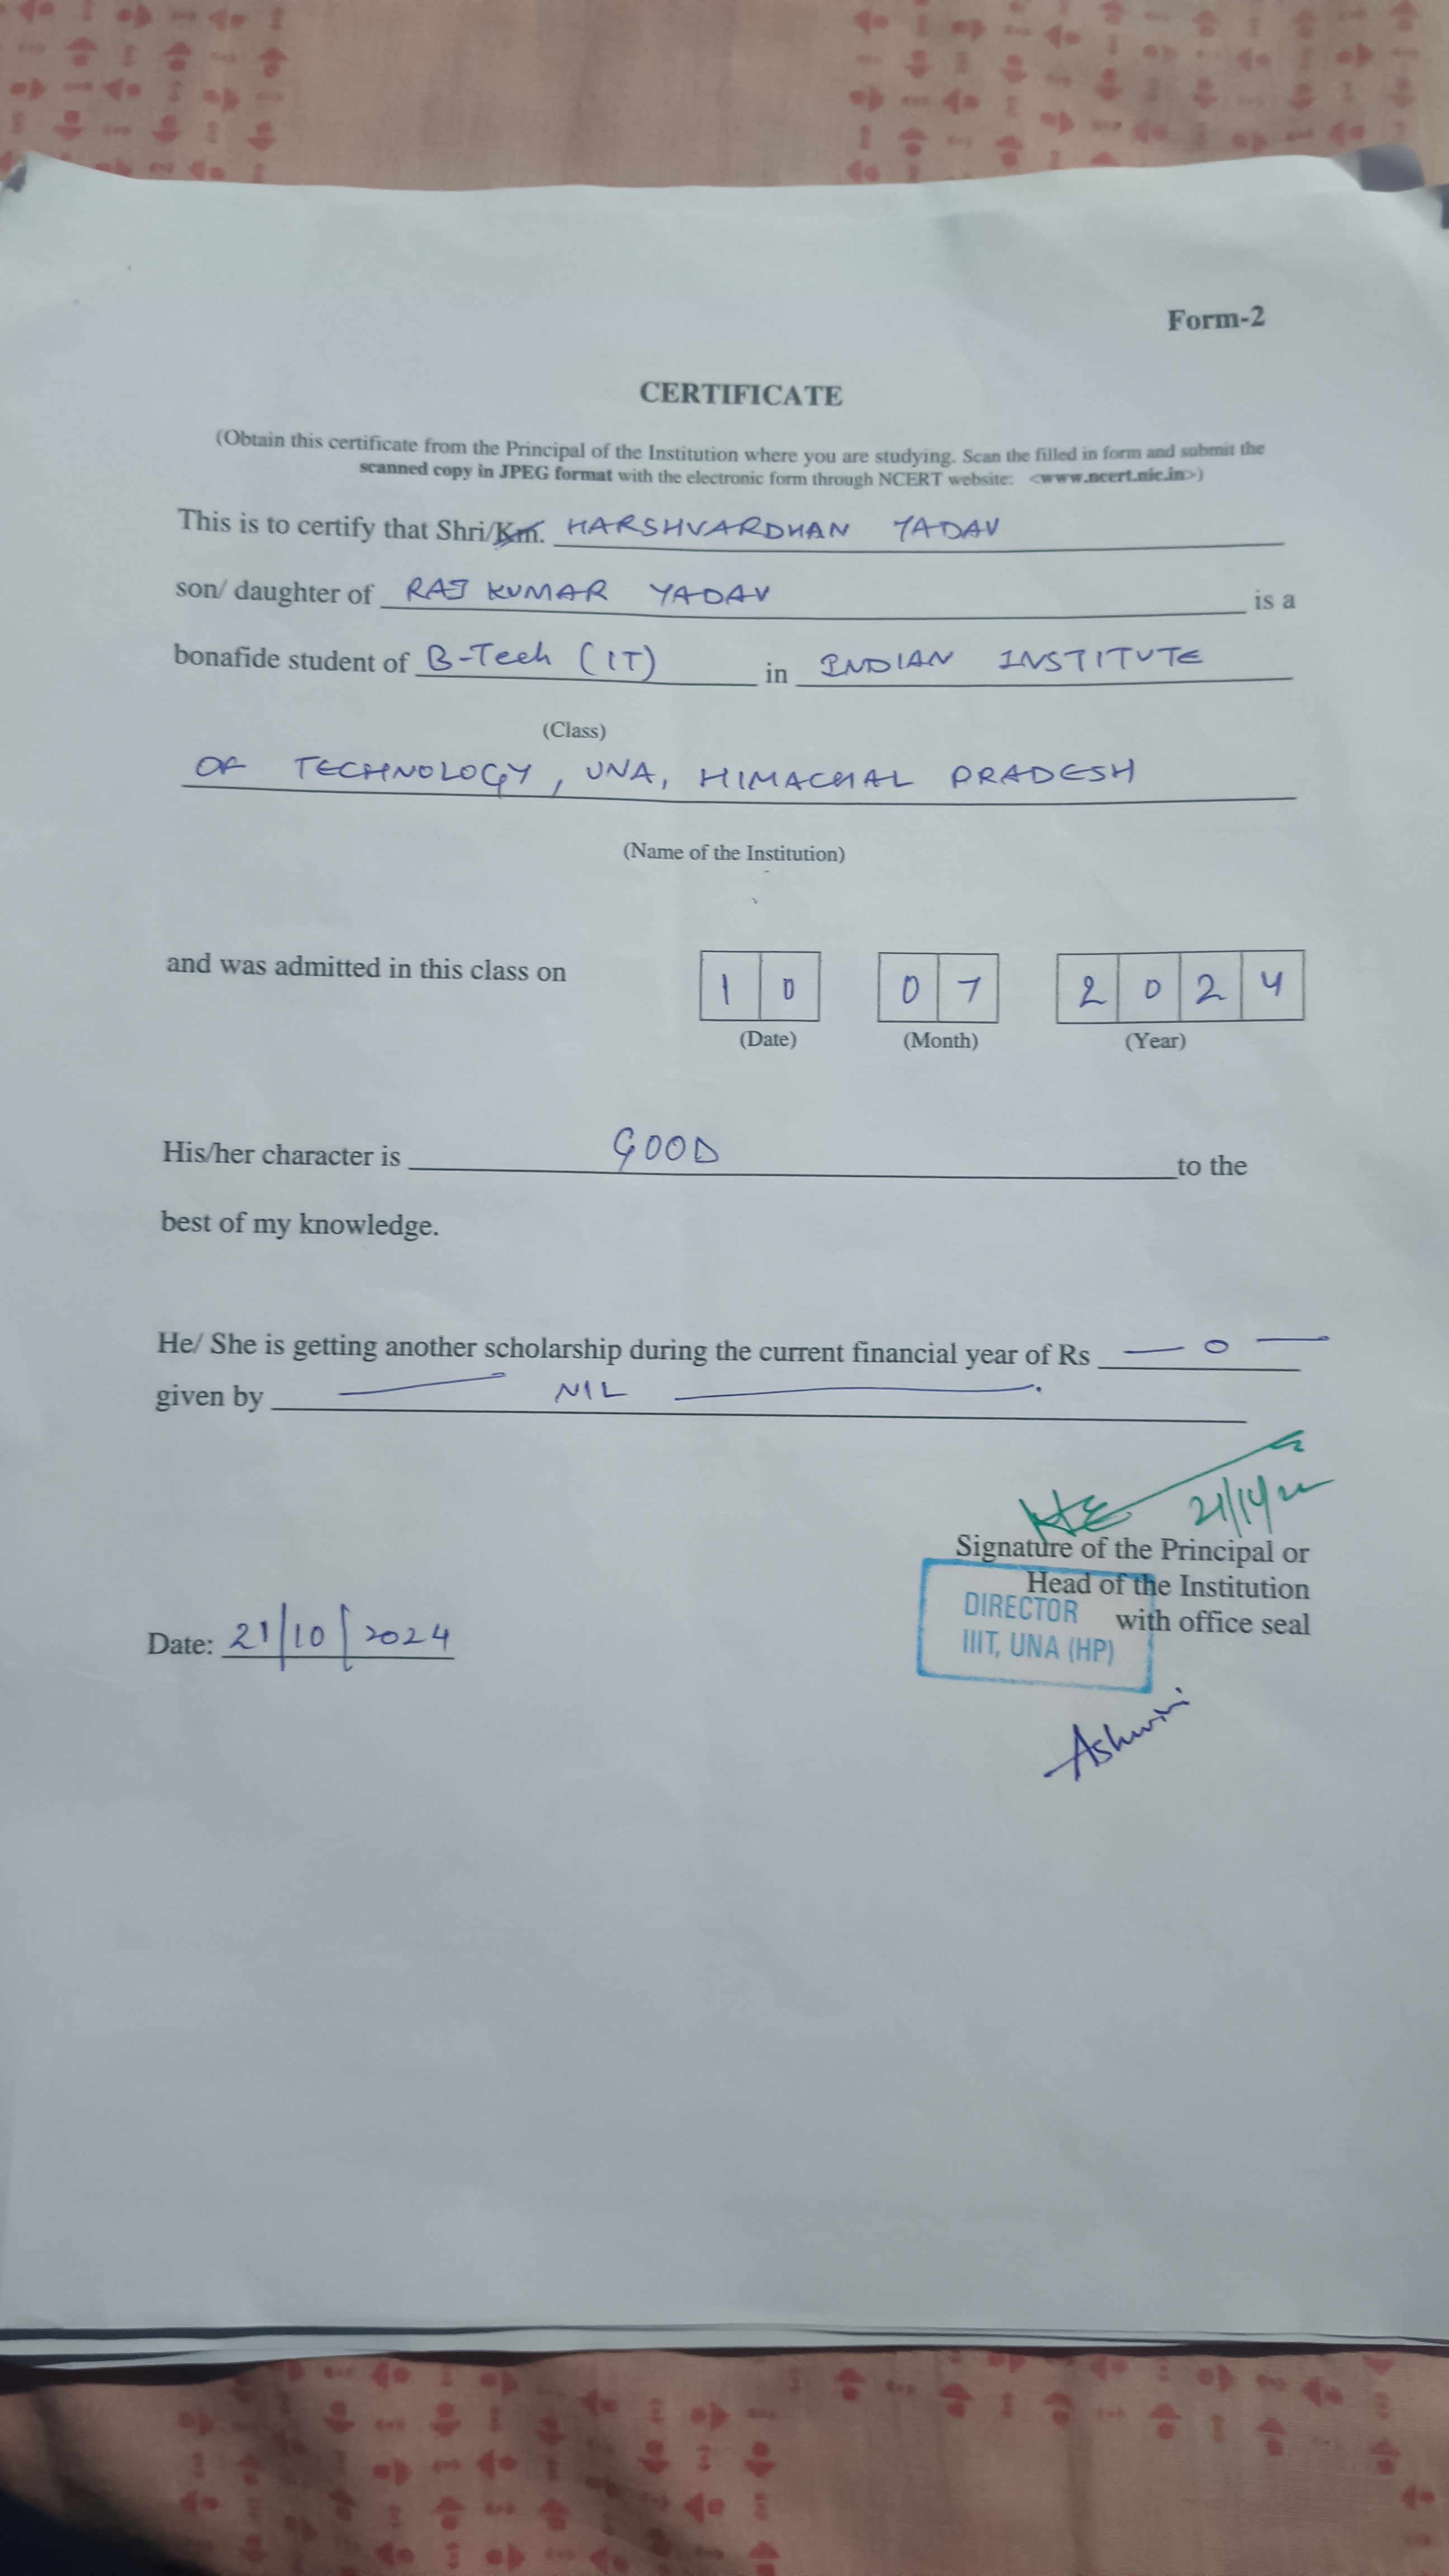 Form-2
CERTIFICATE
(Obtain this certificate from the Principal of the Institution where you are studying. Scan the filled in form and submit the
scanned copy in JPEG format with the electronic form through NCERT website: <www.ncert.nic.in>)
This is to certify that Shri/Km. HARSHVARDHAN YADAV
son/ daughter of RAJ KUMAR YADAV is a
bonafide student of B-Tech (IT) in INDIAN INSTITUTE
(Class)
OF TECHNOLOGY, UNA, HIMACHAL PRADESH
(Name of the Institution)
and was admitted in this class on 10 07 2024
(Date) (Month) (Year)
His/her character is GOOD to the
best of my knowledge.
He/ She is getting another scholarship during the current financial year of Rs — 0 —
given by — NIL —.
Signature of the Principal or
Head of the Institution
with office seal
DIRECTOR
IIIT, UNA (HP)
Date: 21/10/2024
Ashwini